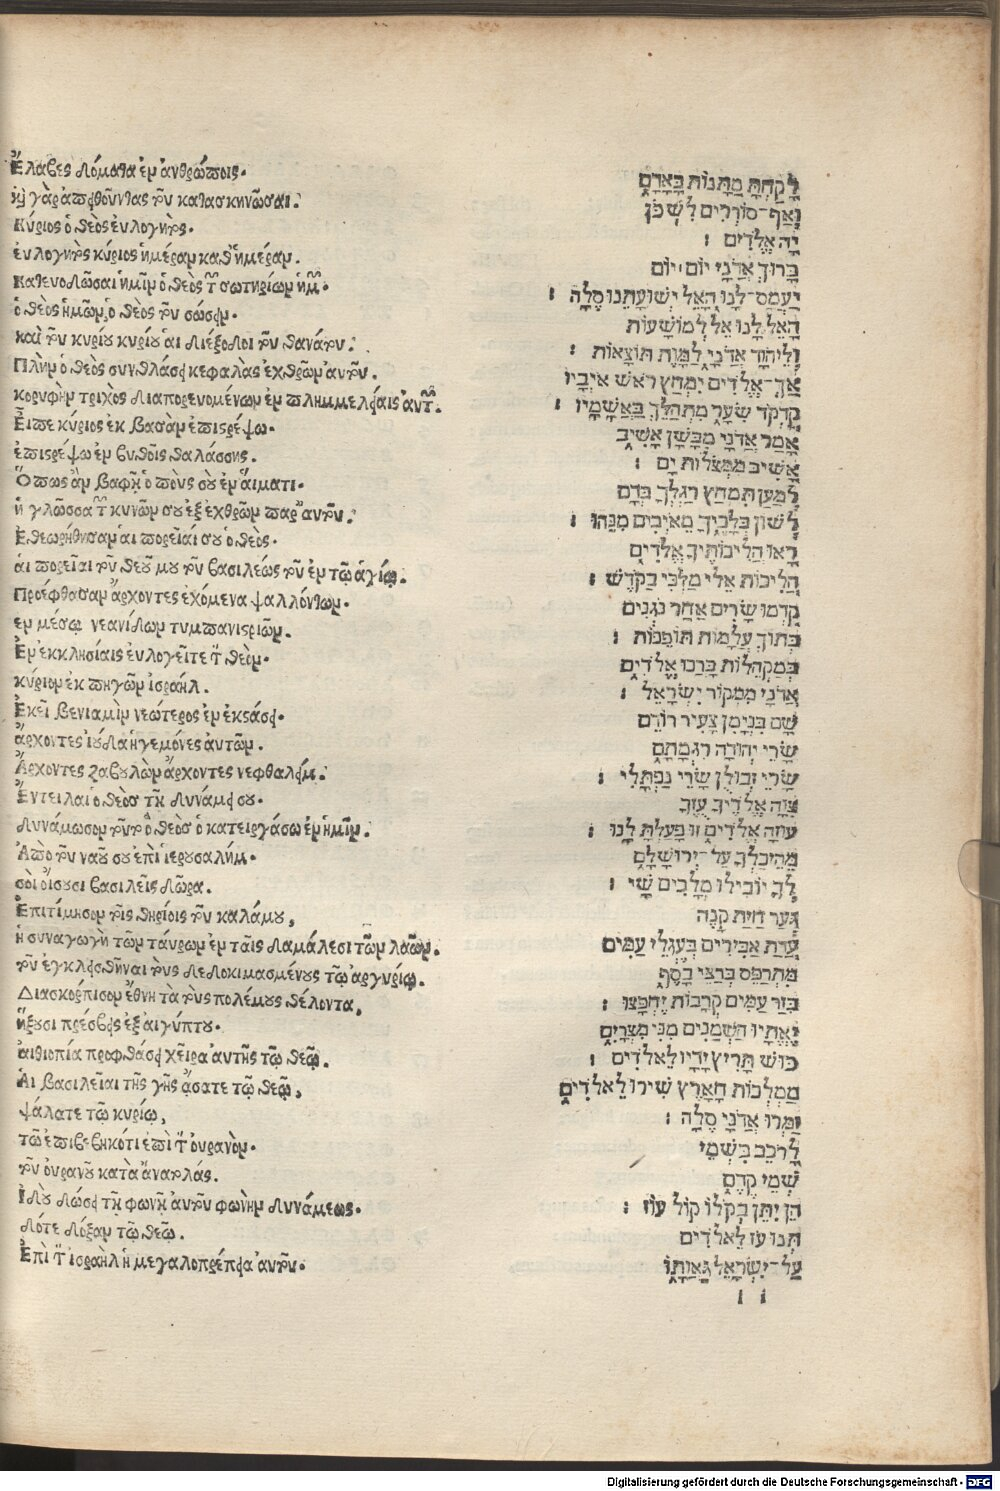 Ἔλαβες δόματα ἐν ἀνθρώποις.
καὶ γὰρ ἀπειθοῦντας τοῦ κατασκηνῶσαι:
Κύριος ὁ θεὸς εὐλογητός.
εὐλογητὸς κύριος ἡμέραν καθ' ἡμέραν.
κατευοδῶσαι ἡμῖν ὁ θεὸς τῶν σωτηρίων ἡμῶν.
ὁ θεὸς ἡμῶν, ὁ θεὸς τοῦ σώσειν.
καὶ τοῦ κυρίου κυρίου αἱ διέξοδοι τοῦ θανάτου:
Πλὴν ὁ θεὸς συνθλάσει κεφαλὰς ἐχθρῶν αὐτοῦ.
κορυφὴν τριχὸς διαπορευομένων ἐν πλημμελείαις αὐτῶν.
Εἶπε κύριος ἐκ βασὰν ἐπιστρέψω.
ἐπιστρέψω ἐν βυθοῖς θαλάσσης.
Ὅπως ἂν βαφῇ ὁ ποὺς σου ἐν αἵματι.
ἡ γλῶσσα τῶν κυνῶν σου ἐξ ἐχθρῶν παρ' αὐτοῦ:
Ἐθεωρήθησαν αἱ πορεῖαί σου ὁ θεὸς.
αἱ πορεῖαι τοῦ θεοῦ μου τοῦ βασιλέως τοῦ ἐν τῷ ἁγίῳ.
Προέφθασαν ἄρχοντες ἐχόμενα ψαλλόντων.
ἐν μέσῳ νεανίδων τυμπανιστριῶν.
Ἐν ἐκκλησίαις εὐλογεῖτε τὸν θεὸν.
κύριον ἐκ πηγῶν ἰσραήλ.
Ἐκεῖ βενιαμὶν νεώτερος ἐν ἐκστάσει.
ἄρχοντες ἰούδα ἡγεμόνες αὐτῶν.
Ἄρχοντες ζαβουλὼν ἄρχοντες νεφθαλείμ.
Ἔντειλαι ὁ θεὸσ τῇ δυνάμει σου.
δυνάμωσον τοῦτο ὁ θεὸσ ὁ κατειργάσω ἐν ἡμῖν.
Ἀπὸ τοῦ ναοῦ σου ἐπὶ ἱερουσαλήμ.
σοὶ οἴσουσι βασιλεῖς δῶρα.
Ἐπιτίμησον τοῖς θηρίοις τοῦ καλάμου,
ἡ συναγωγὴ τῶν ταύρων ἐν ταῖς δαμάλεσι τῶν λαῶν.
τοῦ ἐγκλεισθῆναι τοὺς δεδοκιμασμένους τῷ ἀργυρίῳ.
Διασκόρπισον ἔθνη τὰ τοὺς πολέμους θέλοντα,
ἥξουσι πρέσβεις ἐξ αἰγύπτου.
αἰθιοπία προφθάσει χεῖρα αὐτῆς τῷ θεῷ.
Αἱ βασιλεῖαι τῆς γῆς ᾄσατε τῷ θεῷ,
ψάλατε τῷ κυρίῳ,
τῷ ἐπιβεβηκότι ἐπὶ τὸν οὐρανὸν.
τοῦ οὐρανοῦ κατὰ ἀνατολάς.
Ἰδοὺ δώσει τῇ φωνῇ αὐτοῦ φωνὴν δυνάμεως.
δότε δόξαν τῷ θεῷ.
Ἐπὶ τὸν ἰσραὴλ ἡ μεγαλοπρέπεια αὐτοῦ.
לָקַחְתָּ מַתָּנוֹת בָּאָדָם
וְאַף־סוֹרְרִים לִשְׁכֹּן
יָהּ אֱלֹדִים :
בָּרוּךְ אֲדֹנָי יוֹם יוֹם
יַעֲמָס־לָנוּ הָאֵל יְשׁוּעָתֵנוּ סֶלָה :
הָאֵל לָנוּ אֵל לְמוֹשָׁעוֹת
וְלֵיהֹוָד אֲדֹנָי לַמָּוֶת תּוֹצָאוֹת :
אַךְ־אֱלֹדִים יִמְחַץ רֹאשׁ אֹיְבָיו
קָדְקֹד שֵׂעָר מִתְהַלֵּךְ בַּאֲשָׁמָיו :
אָמַר אֲדֹנָי מִבָּשָׁן אָשִׁיב
אָשִׁיב מִמְּצֻלוֹת יָם :
לְמַעַן תִּמְחַץ רַגְלְךָ בְּדָם
לְשׁוֹן כְּלָבֶיךָ מֵאֹיְבִים מִנֵּהוּ :
רָאוּ הֲלִיכוֹתֶיךָ אֱלֹדִים
הֲלִיכוֹת אֵלִי מַלְכִּי בַקֹּדֶשׁ :
קִדְּמוּ שָׂרִים אַחַר נֹגְנִים
בְּתוֹךְ עֲלָמוֹת תּוֹפֵפוֹת :
בְּמַקְהֵלוֹת בָּרְכוּ אֱלֹדִים
אֲדֹנָי מִמְּקוֹר יִשְׂרָאֵל :
שָׁם בִּנְיָמִן צָעִיר רוֹדֵם
שָׂרֵי יְהוּדָה רִגְמָתָם
שָׂרֵי זְבוּלֻן שָׂרֵי נַפְתָּלִי :
צִוָּה אֱלֹדֶיךָ עֻזֶּךָ
עוּזָּה אֱלֹדִים זוּ פָּעַלְתָּ לָּנוּ :
מֵהֵיכָלֶךָ עַל־יְרוּשָׁלִָם
לְךָ יוֹבִילוּ מְלָכִים שָׁי :
גְּעַר חַיַּת קָנֶה
עֲדַת אַבִּירִים בְּעֶגְלֵי עַמִּים
מִתְרַפֵּס בְּרַצֵּי כָסֶף
בִּזַּר עַמִּים קְרָבוֹת יֶחְפָּצוּ :
יֶאֱתָיוּ חַשְׁמַנִּים מִנִּי מִצְרָיִם
כּוּשׁ תָּרִיץ יָדָיו לֵאלֹדִים :
מַמְלְכוֹת הָאָרֶץ שִׁירוּ לֵאלֹדִים
זַמְּרוּ אֲדֹנָי סֶלָה :
לָרֹכֵב בִּשְׁמֵי
שְׁמֵי קֶדֶם
הֵן יִתֵּן בְּקֹלוֹ קוֹל עֹז :
תְּנוּ עֹז לֵאלֹדִים
עַל־יִשְׂרָאֵל גַּאֲוָתוֹ
: :
Digitalisierung gefördert durch die Deutsche Forschungsgemeinschaft - DFG